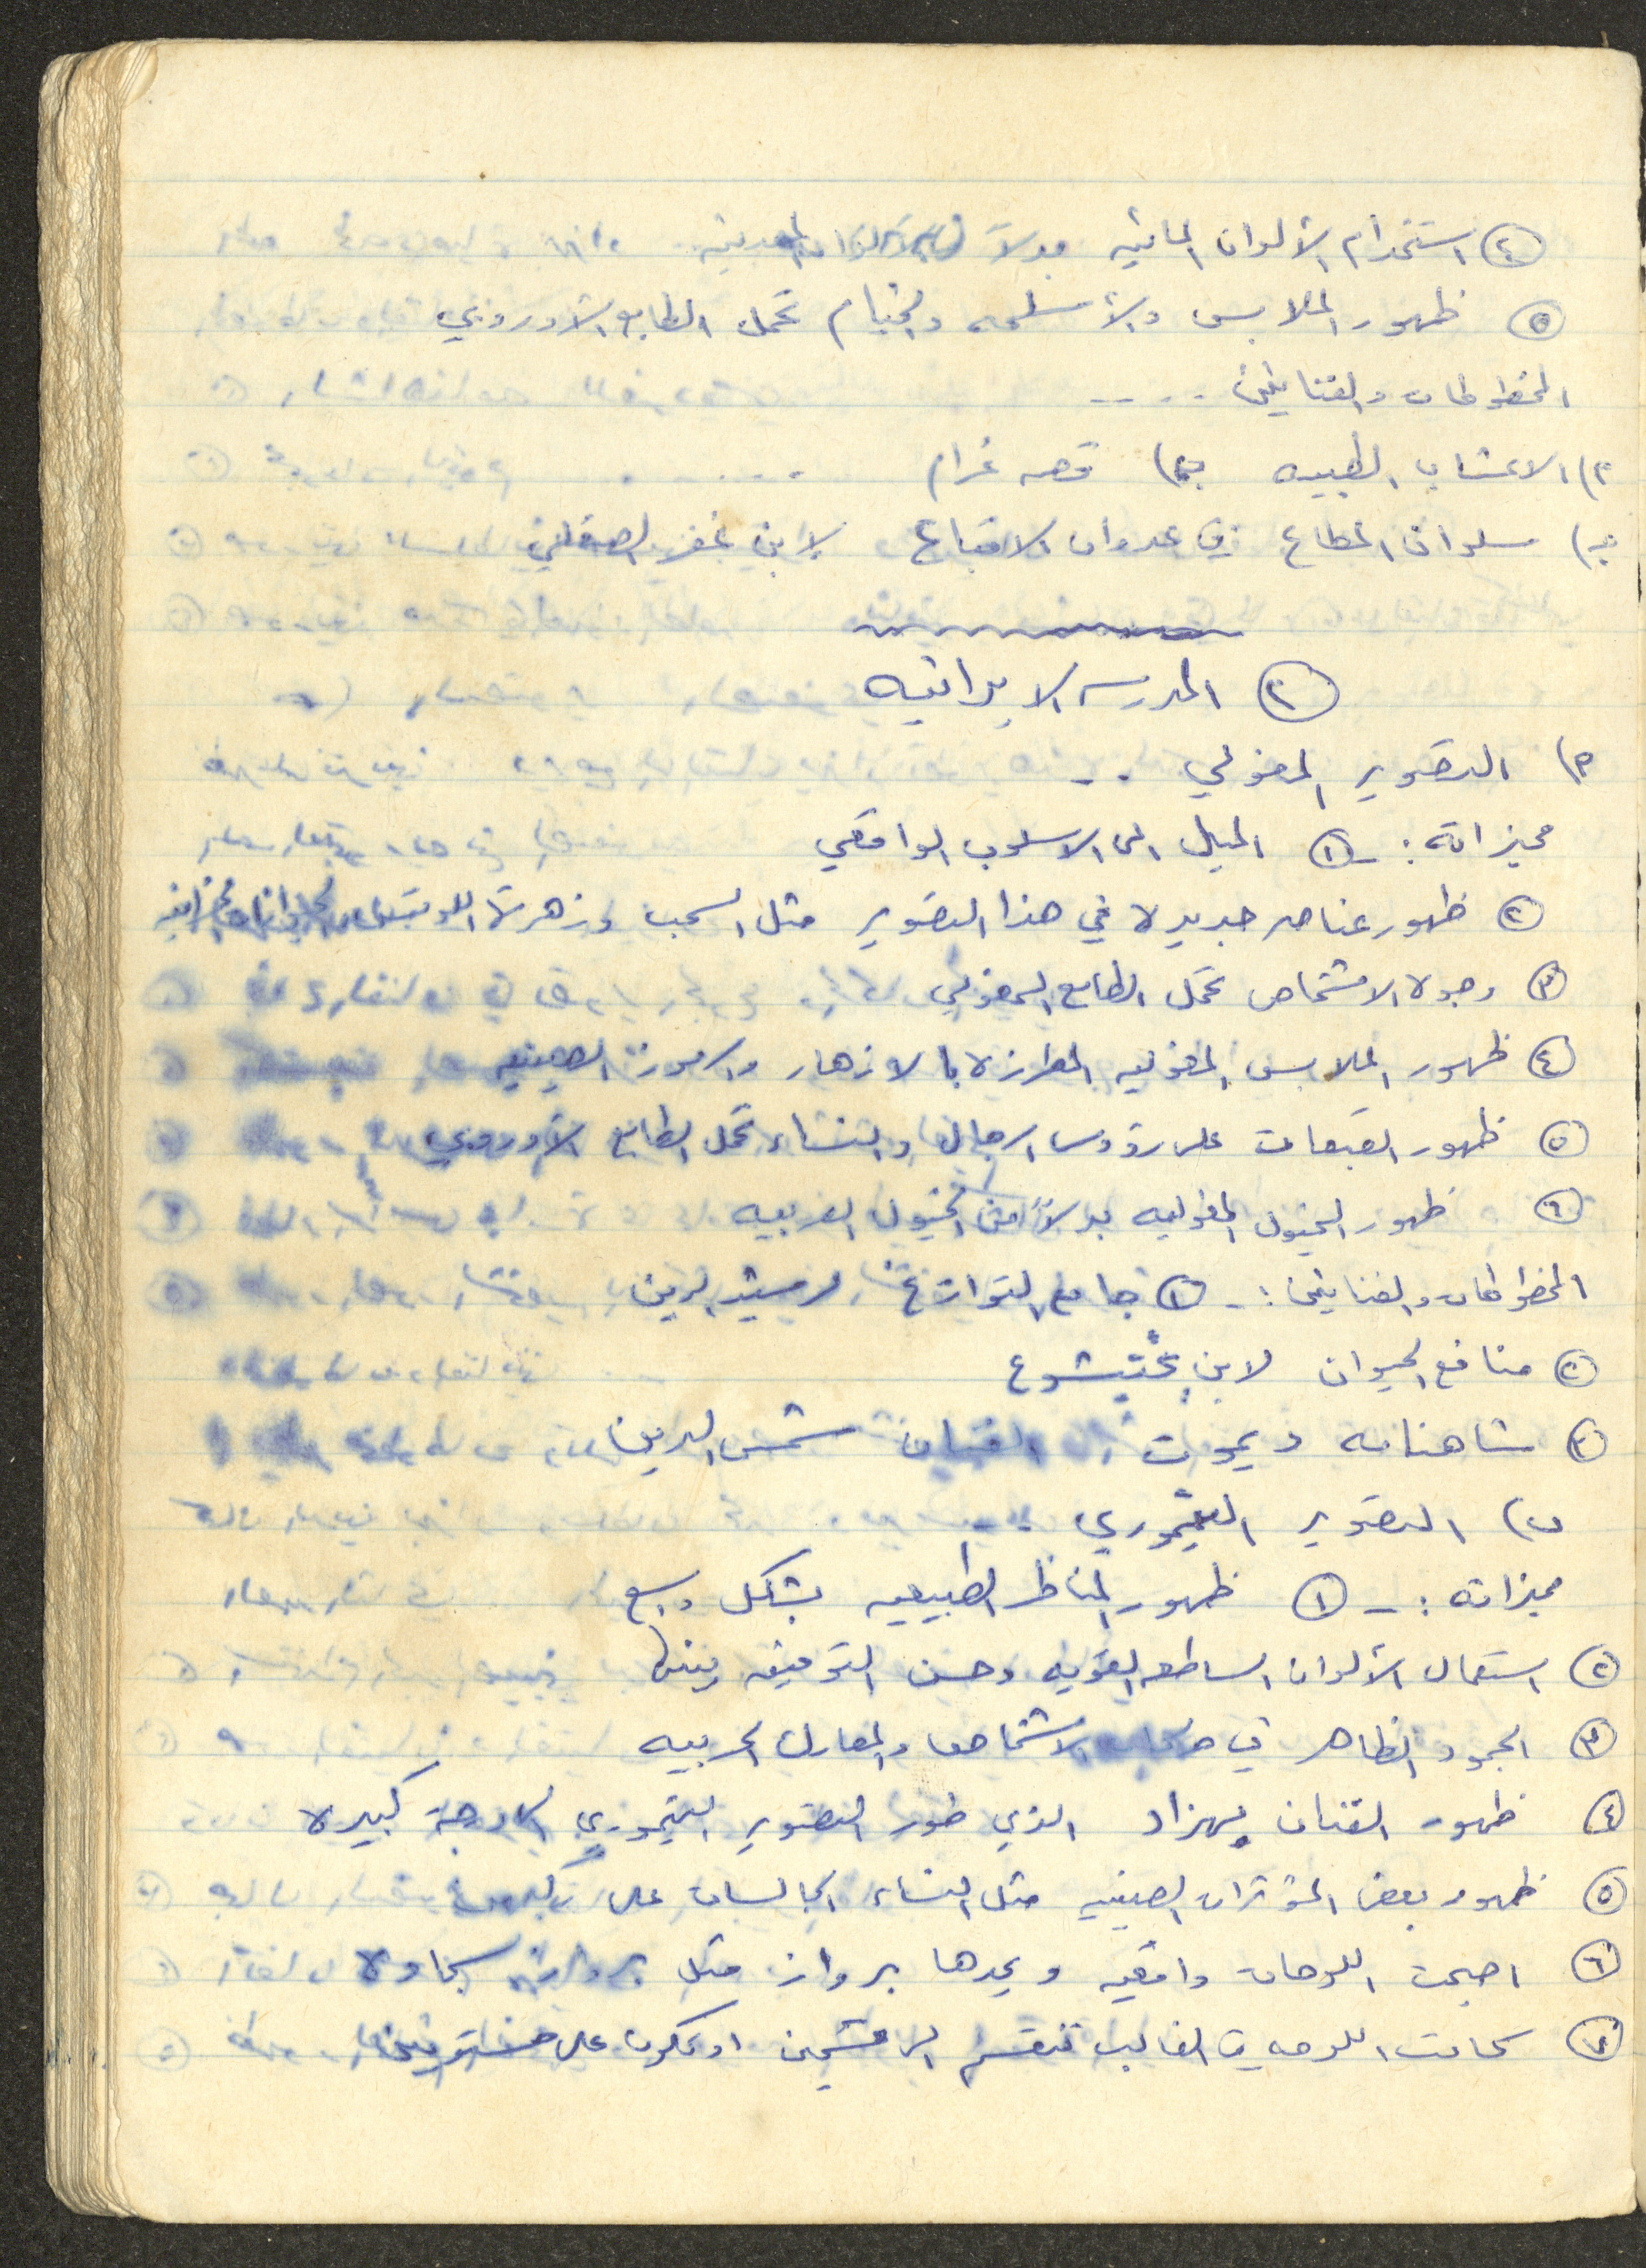 ④ استخدام الألوان المائيه بدلاً من الألوان المعدنيه
⑤ ظهور الملابس والأسلحه والخيام تحمل الطابع الأوروبي
المخطوطات والفنانين ....
٢) الاعشاب الطبيه ج) قصه غرام
ب) سلوان المطاع في عدوان الاتباع لابن ظفر الصقلي
② المدرسه الايرانيه
٢) التصوير المغولي ..
مميزاته :ـ ① الميل الى الاسلوب الواقعي
② ظهور عناصر جديده في هذا التصوير مثل السحب وزهرة اللوتس والحيوانات الخرافيه
③ وجوه الاشخاص تحمل الطابع المغولي
④ ظهور الملابس المغوليه المطرزه بالازهار والرموز الصينيه
⑤ ظهور القبعات على رؤوس الرجال والنساء تحمل الطابع الأوروبي
⑥ ظهور الخيول المغوليه بدلاً من الخيول العربيه
المخطوطات والفنانين :ـ ① جامع التواريخ لرشيد الدين
② منافع الحيوان لابن بختيشوع
③ شاهنامه ديموت الفنان شمس الدين
ب) التصوير التيموري ..
مميزاته :ـ ① ظهور المناظر الطبيعيه بشكل واسع
② استعمال الألوان الساطعه القويه وحسن التوفيق بينها
③ الجمود الظاهر في الاشخاص والمعارك الحربيه
④ ظهور الفنان بهزاد الذي طور التصوير التيموري الى درجة كبيره
⑤ ظهور بعض المؤثرات الصينيه مثل النساء الجالسات على
⑥ اصبحت اللوحات واقعيه ويحدها برواز مثل سجاده
⑦ كانت اللوحه في الغالب تنقسم الى قسمين او تكون على مستويين